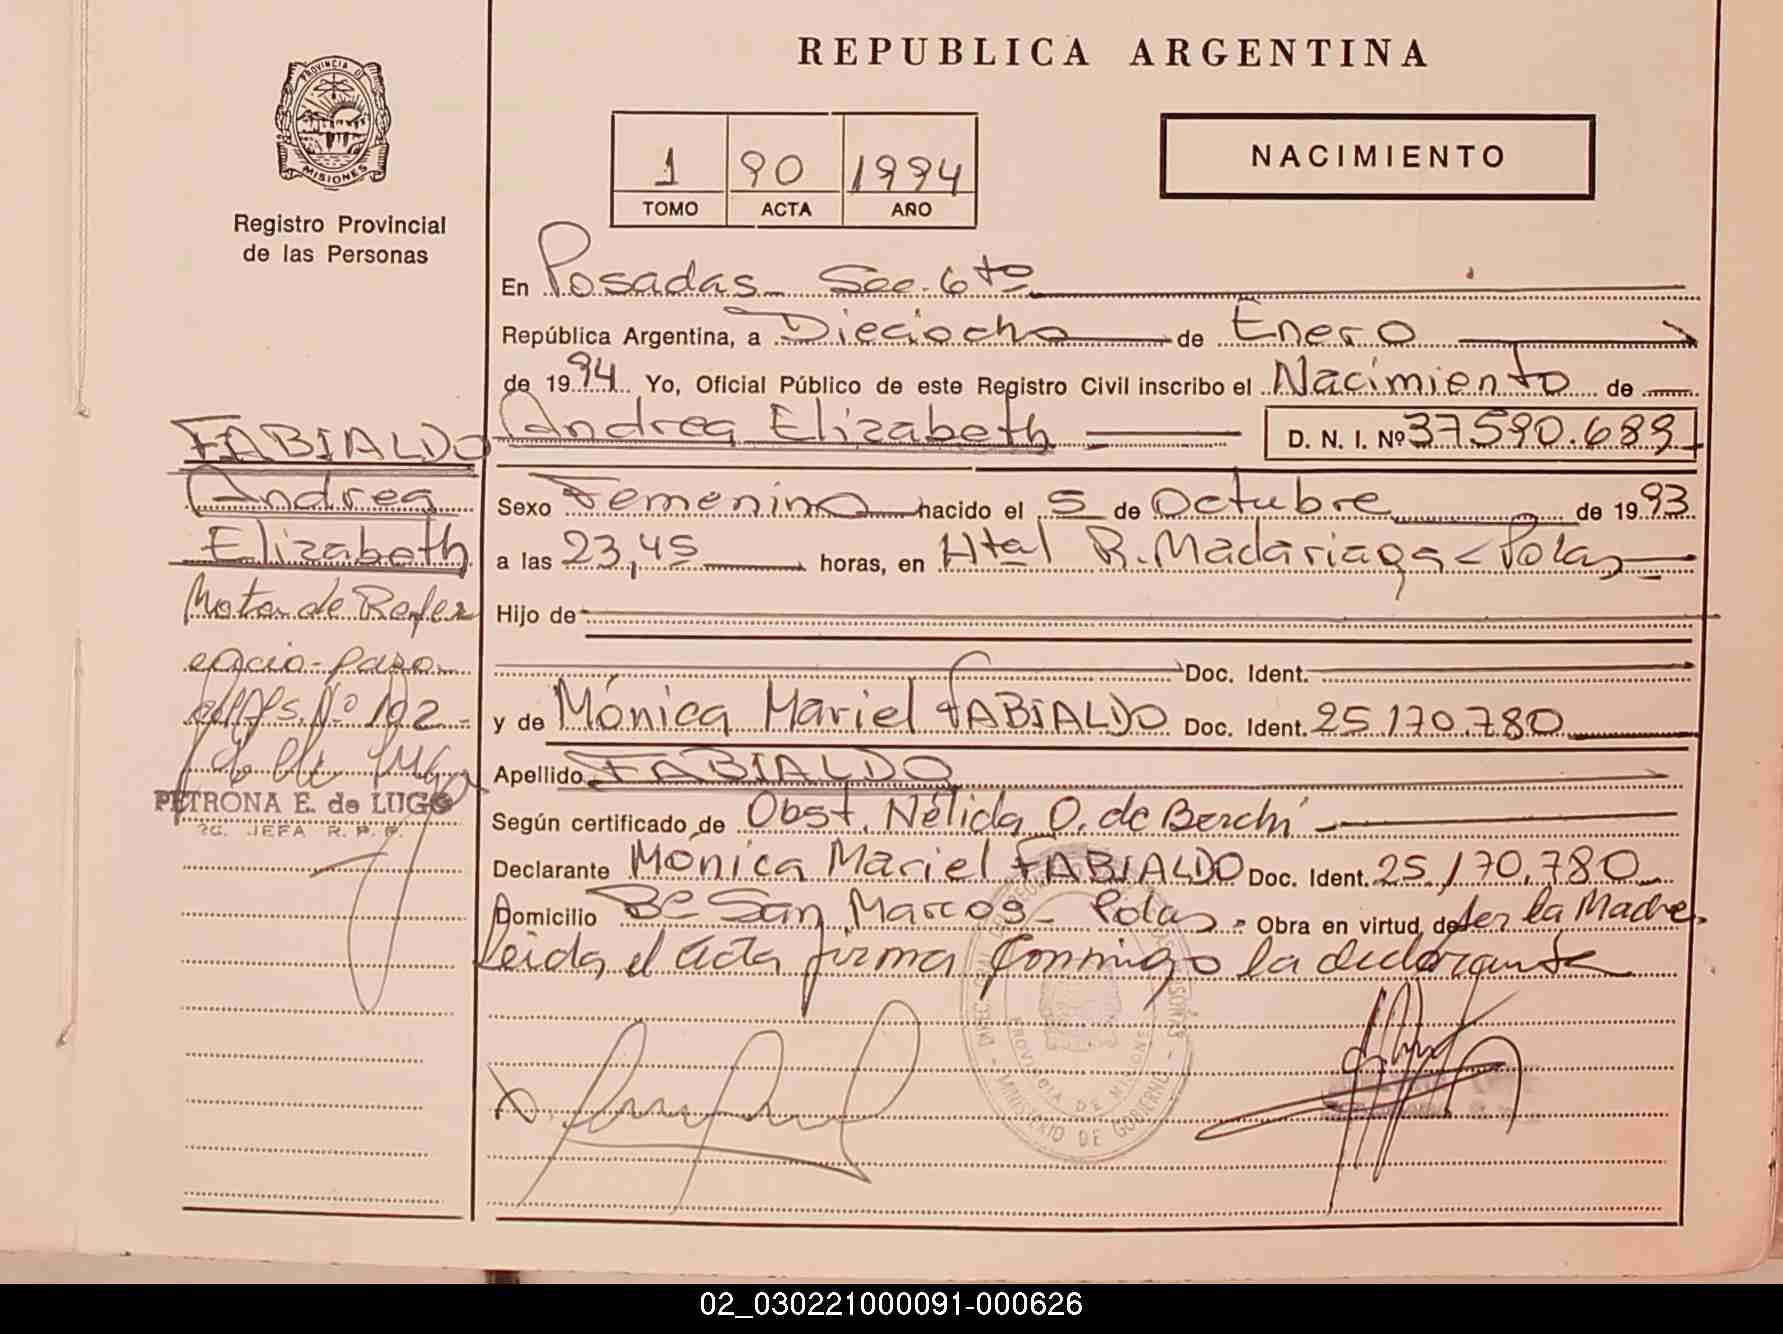 REPUBLICA ARGENTINA
PROVINCIA D
MISIONES
Registro Provincial
de las Personas
1 90 1994
TOMO ACTA AÑO
NACIMIENTO
En Posadas - Sec. 6to
República Argentina, a Dieciocho de Enero
de 1994 Yo, Oficial Público de este Registro Civil inscribo el Nacimiento de
Andrea Elizabeth D. N. I. Nº 37.590.689
Sexo Femenino nacido el 5 de Octubre de 1993
a las 23,45 horas, en Htal R. Madariaga - Pdas
Hijo de
Doc. Ident.
y de Mónica Mariel FABIALDO Doc. Ident. 25.170.780
Apellido FABIALDO
Según certificado de Obst. Nélida O. de Berchi
Declarante Mónica Mariel FABIALDO Doc. Ident. 25.170.780
Domicilio Bº San Marcos - Pdas. Obra en virtud de Ser la Madre.
Leida el acta firma conmigo la declarante
FABIALDO
Andrea
Elizabeth
Nota de Refer
encia - paso
al Fs. Nº 192
PETRONA E. de LUGO
JEFA R. P. P.
PROVINCIA DE MISIONES
MINISTERIO DE GOBIERNO
02_030221000091-000626